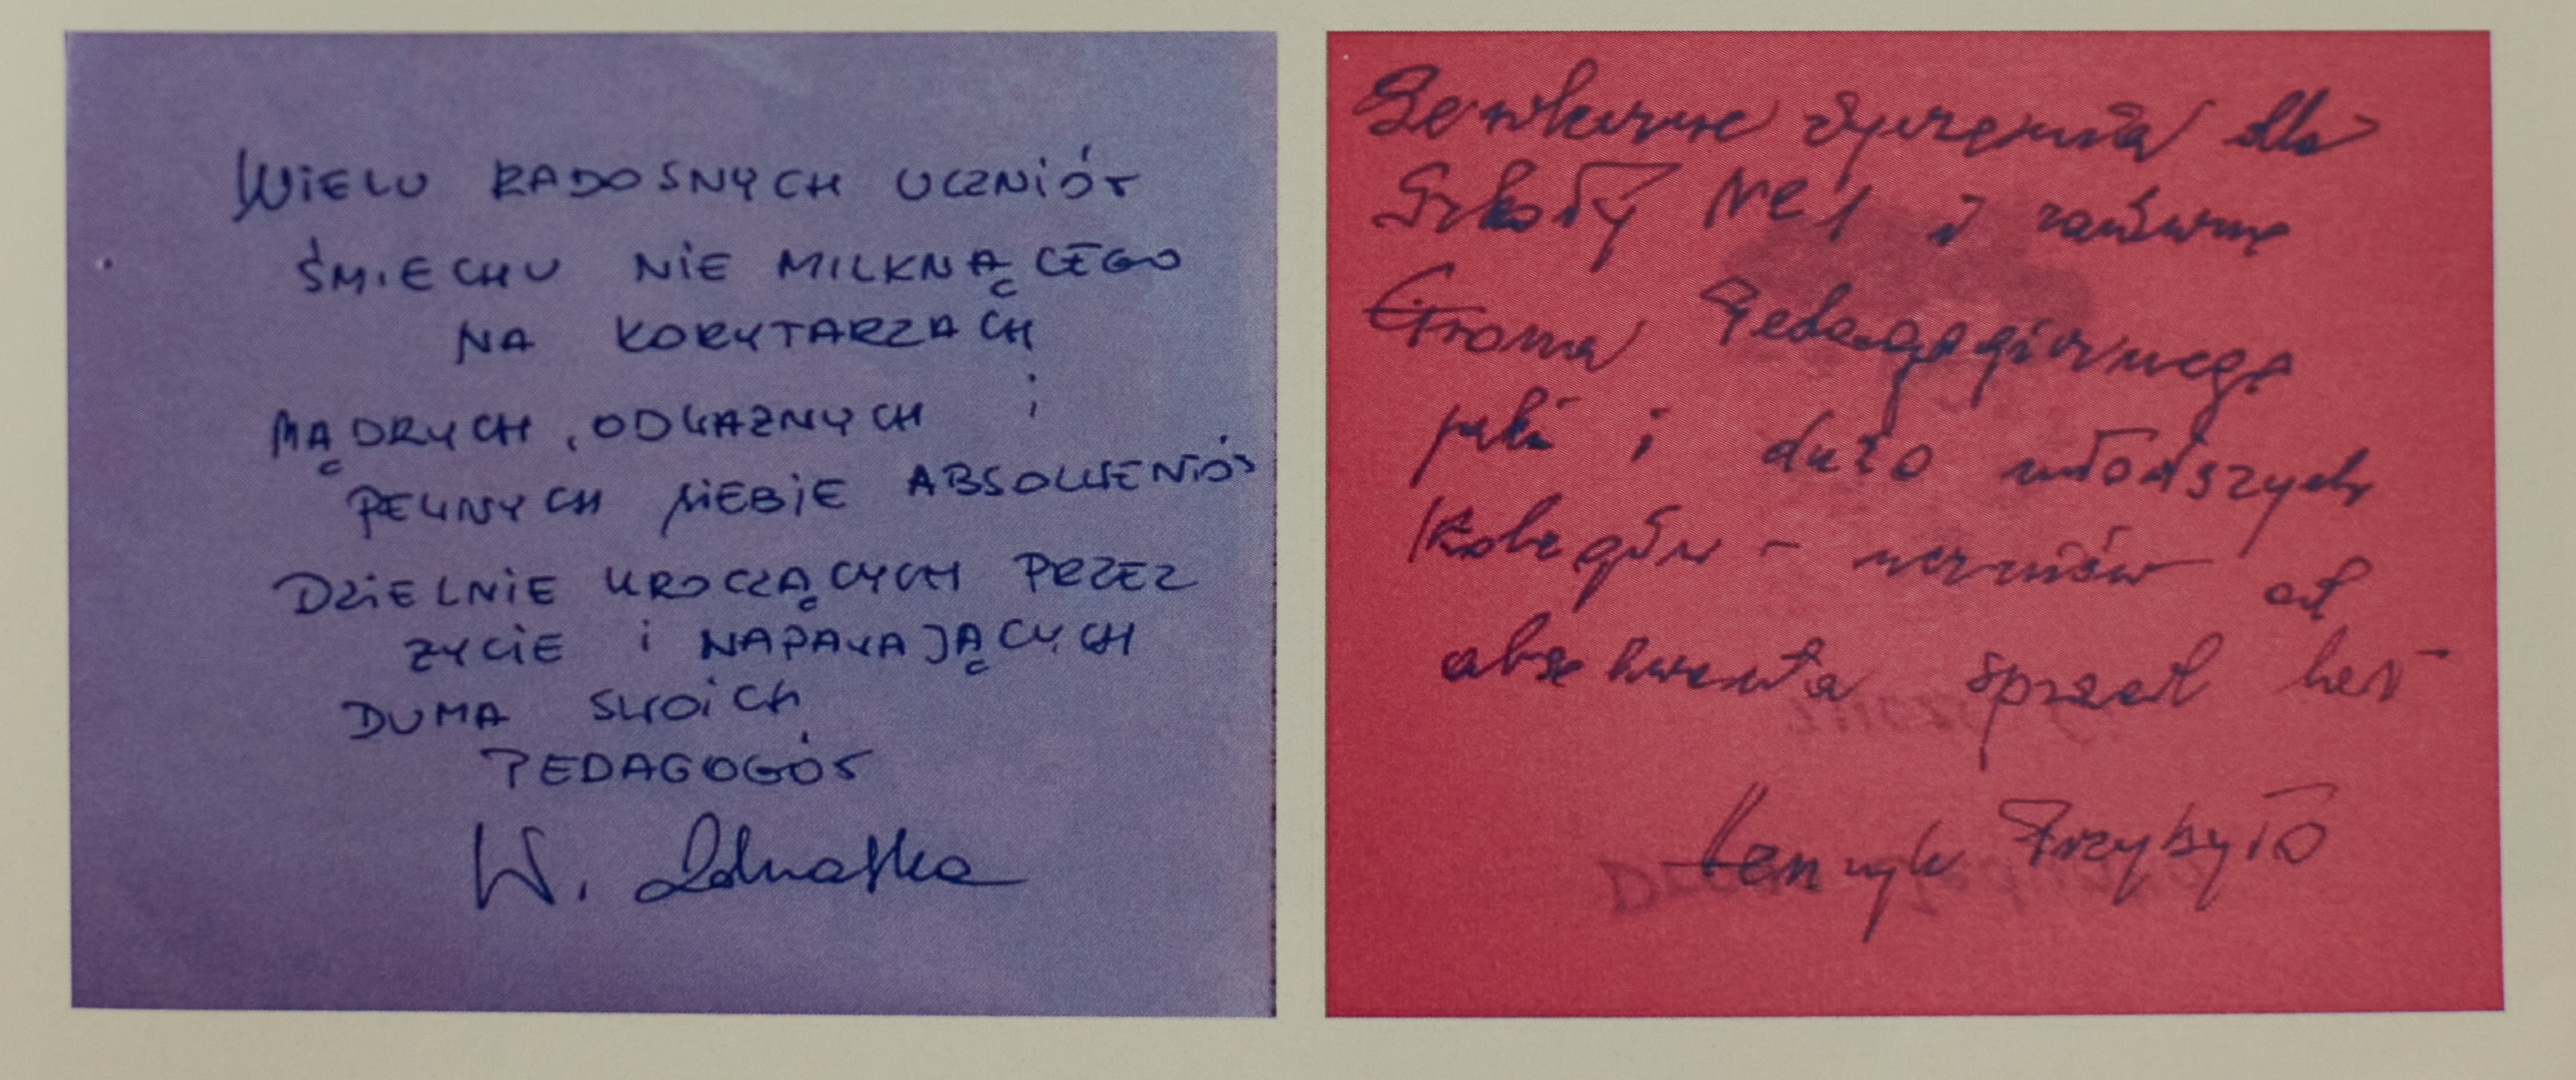 WIELU RADOSNYCH UCZNIÓW
ŚMIECHU NIE MILKNĄCEGO
NA KORYTARZACH
MĄDRYCH, ODWAZNYCH i
PEWNYCH SIEBIE ABSOLWENTÓW
DZIELNIE KROCZĄCYCH PRZEZ
ZYCIE i NAPAWAJĄCYCH
DUMA SWOICH
PEDAGOGÓW
W.
Serdeczne życzenia dla
Szkoły Nr 1 i zarówno
Grona Pedagogicznego
jak i dużo młodszych
Kolegów - uczniów od
absolwenta sprzed lat
Henryk Przybyło